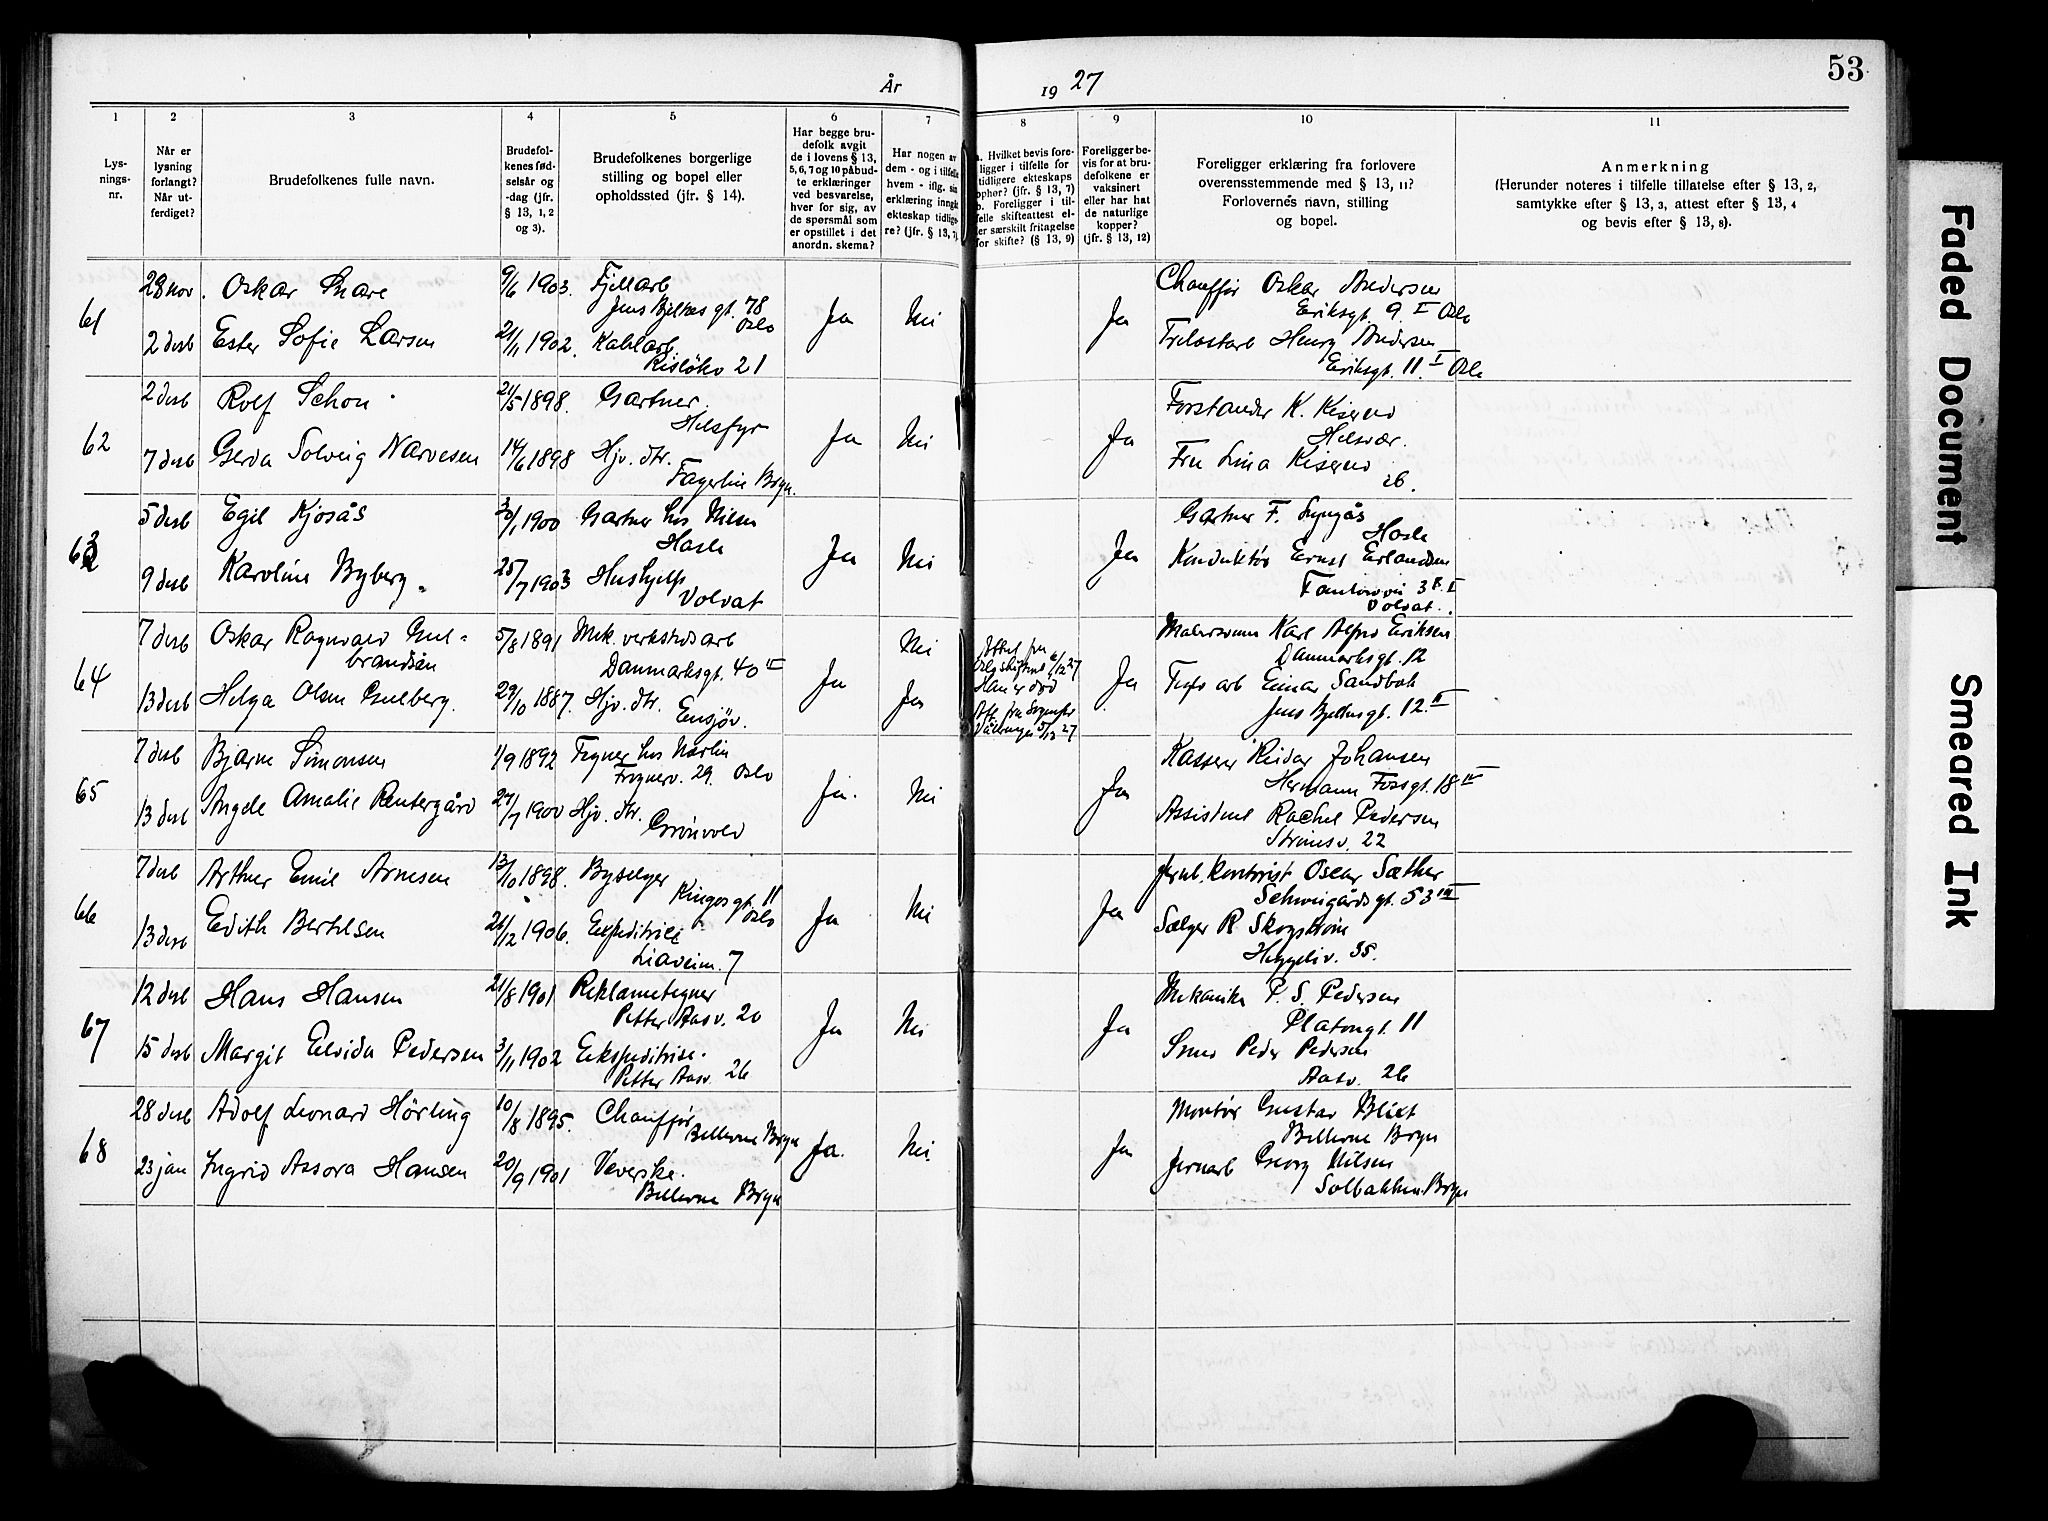 53
År 1927
1
Lys-
nings-
nr.
2
Når er
lysning
forlangt?
Når ut-
ferdiget?
3
Brudefolkenes fulle navn.
4
Brudefol-
kenes fød-
selsår og
-dag (jfr.
§ 13, 1, 2
og 3).
5
Brudefolkenes borgerlige
stilling og bopel eller
opholdssted (jfr. § 14).
6
Har begge bru-
defolk avgit
de i lovens § 13,
5, 6, 7 og 10 påbud-
te erklæringer
ved besvarelse,
hver for sig, av
de spørsmål som
er opstillet i det
anordn. skema?
7
Har nogen av
dem - og i tilfelle
hvem - iflg. sin
erklæring inngå
ekteskap tidlige
re? (jfr. § 13, 7)
8
a. Hvilket bevis fore-
ligger i tilfelle for
tidligere ekteskaps
ophør? (jfr. § 13, 7)
b. Foreligger i til-
felle skifteattest el-
ler særskilt fritagelse
for skifte? (§ 13, 9)
9
Foreligger be-
vis for at bru-
defolkene er
vaksinert
eller har hat
de naturlige
kopper?
(jfr. § 13, 12)
10
Foreligger erklæring fra forlovere
overensstemmende med § 13, 11?
Forlovernes navn, stilling
og bopel.
11
Anmerkning
(Herunder noteres i tilfelle tillatelse efter § 13, 2,
samtykke efter § 13, 3, attest efter § 13, 4
og bevis efter § 13, 8).
61
28 nov. Oskar Snare 9/6 1903. Fjellarb
Jens Bjelkes gt. 78
Oslo
Ja Nei Ja
Chauffør Oskar Andersen
Eriksgt. 9 I Oslo
2 desb Ester Sofie Larsen 21/11 1902. Kabelarb
Risløkv 21
Henry Andersen
Eriksgt. 11 I Oslo
62
2 desb Rolf Schou 21/5 1898. Gartner
Helsfyr
Ja Nei Ja
Forstander K. Kiserud
7 desb Gerda Solveig Narvesen 14/6 1898 Hjv. dtr.
Fagerlie Bryn.
Fru Lina Kiserud
63
5 desb Egil Kjosås 30/1 1900 Gartner hos Nilsen
Hasle
Ja Nei Ja
Gartner F. Lyngås
Hasle
9 desb Karoline Byberg 25/7 1903 Hushjelp
Volvat
Konduktør Ernst Erlandsen
Volvat.
64
7 desb Oskar Ragnvald Gul-
brandsen
5/8 1891 Mek. verkstedsarb
Danmarksgt. 40 II
Nei
Malersvenn Karl Alfred Eriksen
Danmarksgt. 12
13 desb Helga Olsen Gulberg. 29/10 1887. Hjv. dtr.
Ensjøv.
Ja Ja
Attest fra
Oslo skifterett 6/12 27
Han er død
Att. fra Sognepr
Vålerengen 5/12 27
Ja
arb Einar Sandbak
Jens Bjelkesgt. 12 II
65
7 desb Bjarne Simonsen 1/9 1892 Tegner hos Narlin
Frognerv. 29. Oslo
Ja. Nei Ja
Kasserer Reidar Johansen
Hermann Fossgt. 18 IV
13 desb Angele Amalie Rentergård 27/7 1900 Hjv. dtr.
Grønvold
Assistent Rachel Pedersen
Strømsv. 22
66
7 desb Arthur Emil Arnesen 13/10 1898. Byselger
Kingosgt. 11
Oslo
Ja Nei Ja
Jernb. kontorist Oscar Sæther
Schweigårdsgt. 53 III
13 desb Edith Bertelsen 26/12 1906. Expeditrise
Liaveien. 7
Sælger R Skogstrøm
Heggeliv. 35.
67
12 desb Hans Hansen 21/8 1901 Reklametegner
Petter Aasv. 20
Ja Nei Ja
Mekaniker P. S. Pedersen
Platougt. 11
15 desb Margit Elvida Pedersen 3/11 1902 Ekspeditrise.
Petter Aasv. 26
Smed Peder Pedersen
Aasv. 26
68
28 desb Adolf Leonard Hörling 10/8 1895. Chauffør
Bellevue Bryn
Ja. Nei. Ja
Montør Gustav Blixt
Bellevue Bryn
23 jan Ingrid Assora Hansen 20/9 1901 Veverske.
Bellevue Bryn
Jernarb Georg Nilsen
Solbakken Bryn
Faded Document
Smeared Ink